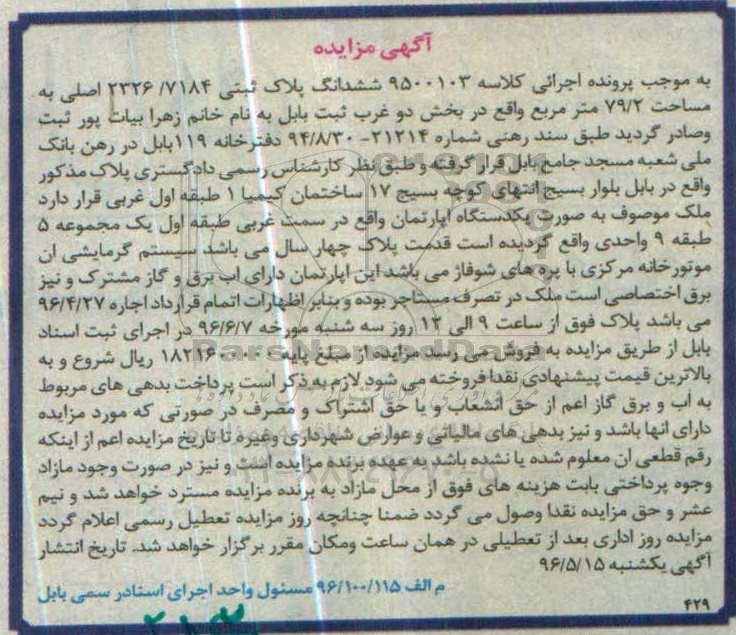 آگهی مزایده
به موجب پرونده اجرائی کلاسه ۹۵۰۰۱۰۳ ششدانگ پلاک ثبتی ۷۱۸۴/ ۲۳۲۶ اصلی به
مساحت ۷۹/۲ متر مربع واقع در بخش دو غرب ثبت بابل به نام خانم زهرا بیات پور ثبت
وصادر گردید طبق سند رهنی شماره ۲۱۲۱۴- ۹۴/۸/۳۰ دفترخانه ۱۱۹بابل در رهن بانک
ملی شعبه مسجد جامع بابل قرار گرفته و طبق نظر کارشناس رسمی دادگستری پلاک مذکور
واقع در بابل بلوار بسیج انتهای کوچه بسیج ۱۷ ساختمان کیمیا ۱ طبقه اول غربی قرار دارد
ملک موصوف به صورت یکدستگاه اپارتمان واقع در سمت غربی طبقه اول یک مجموعه ۵
طبقه ۹ واحدی واقع گردیده است قدمت پلاک چهار سال می باشد سیستم گرمایشی ان
موتورخانه مرکزی با پره های شوفاژ می باشد این اپارتمان دارای اب برق و گاز مشترک و نیز
برق اختصاصی است ملک در تصرف مستاجر بوده و بنابر اظهارات اتمام قرارداد اجاره ۹۶/۴/۲۷
می باشد پلاک فوق از ساعت ۹ الی ۱۲ روز سه شنبه مورخه ۹۶/۶/۷ در اجرای ثبت اسناد
بابل از طریق مزایده به فروش می رسد مزایده از مبلغ پایه ریال شروع و به
بالاترین قیمت پیشنهادی نقدا فروخته می شود لازم به ذکر است پرداخت بدهی های مربوط
به اب و برق گاز اعم از حق انشعاب و یا حق اشتراک و مصرف در صورتی که مورد مزایده
دارای انها باشد و نیز بدهی های مالیاتی و عوارض شهرداری وغیره تا تاریخ مزایده اعم از اینکه
رقم قطعی ان معلوم شده یا نشده باشد به عهده برنده مزایده است و نیز در صورت وجود مازاد
وجوه پرداختی بابت هزینه های فوق از محل مازاد به برنده مزایده مسترد خواهد شد و نیم
عشر و حق مزایده نقدا وصول می گردد ضمنا چنانچه روز مزایده تعطیل رسمی اعلام گردد
مزایده روز اداری بعد از تعطیلی در همان ساعت ومکان مقرر برگزار خواهد شد. تاریخ انتشار
آگهی یکشنبه ۹۶/۵/۱۵
م الف ۹۶/۱۰۰/۱۱۵ مسئول واحد اجرای اسنادر سمی بابل
۴۲۹
ParsNamadData